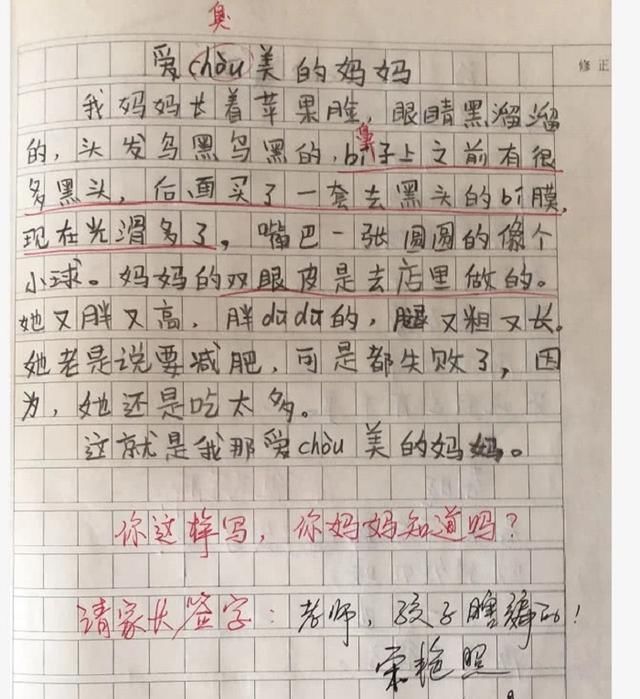 臭
爱chòu美的妈妈
修正
我妈妈长着苹果脸，眼睛黑溜溜
的，头发乌黑乌黑的，bí子上之前有很
鼻
多黑头，后面买了一套去黑头的bí膜，
现在光滑多了，嘴巴一张圆圆的像个
小球。妈妈的双眼皮是去店里做的。
她又胖又高，胖dūdū的，腿又粗又长。
她老是说要减肥，可是都失败了，因
为，她还是吃太多。
这就是我那爱chòu美的妈妈。
你这样写，你妈妈知道吗？
请家长签字：老师，孩子瞎编的！